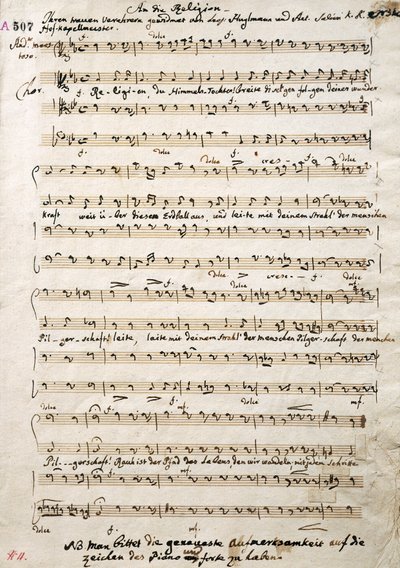 An die Religion
Ihren treuen Verehrern gewidmet von Leop: Huglmann und Ant. Salieri k. K. erster
A 507 Hofkapellmeister.
And.te maes dolce f. dolce f. dolce
toso.
Chor. Re-ligion, du Himmels-Tochter! breite Segen deines wunder
dolce dolce f. cres - - f. dolce
kraft weit ü-ber diesen Erdball aus, und lei-te mit deinem Strahl' der menschen
dolce f. dolce cres - - f. dolce mf.
Pil - ger - schaft! leite, leite mit deinem Strahl' der menschen Pilgerschaft der menschen
dolce f. mf. dolce mf.
Pil - - - gerschaft! Rauh ist der Pfad des Lebens den wir wandeln mit jedem Schritte
dolce f. mf. dolce
NB man bittet die genaueste Aufmerksamkeit auf die
zeichen des Piano und forte zu haben